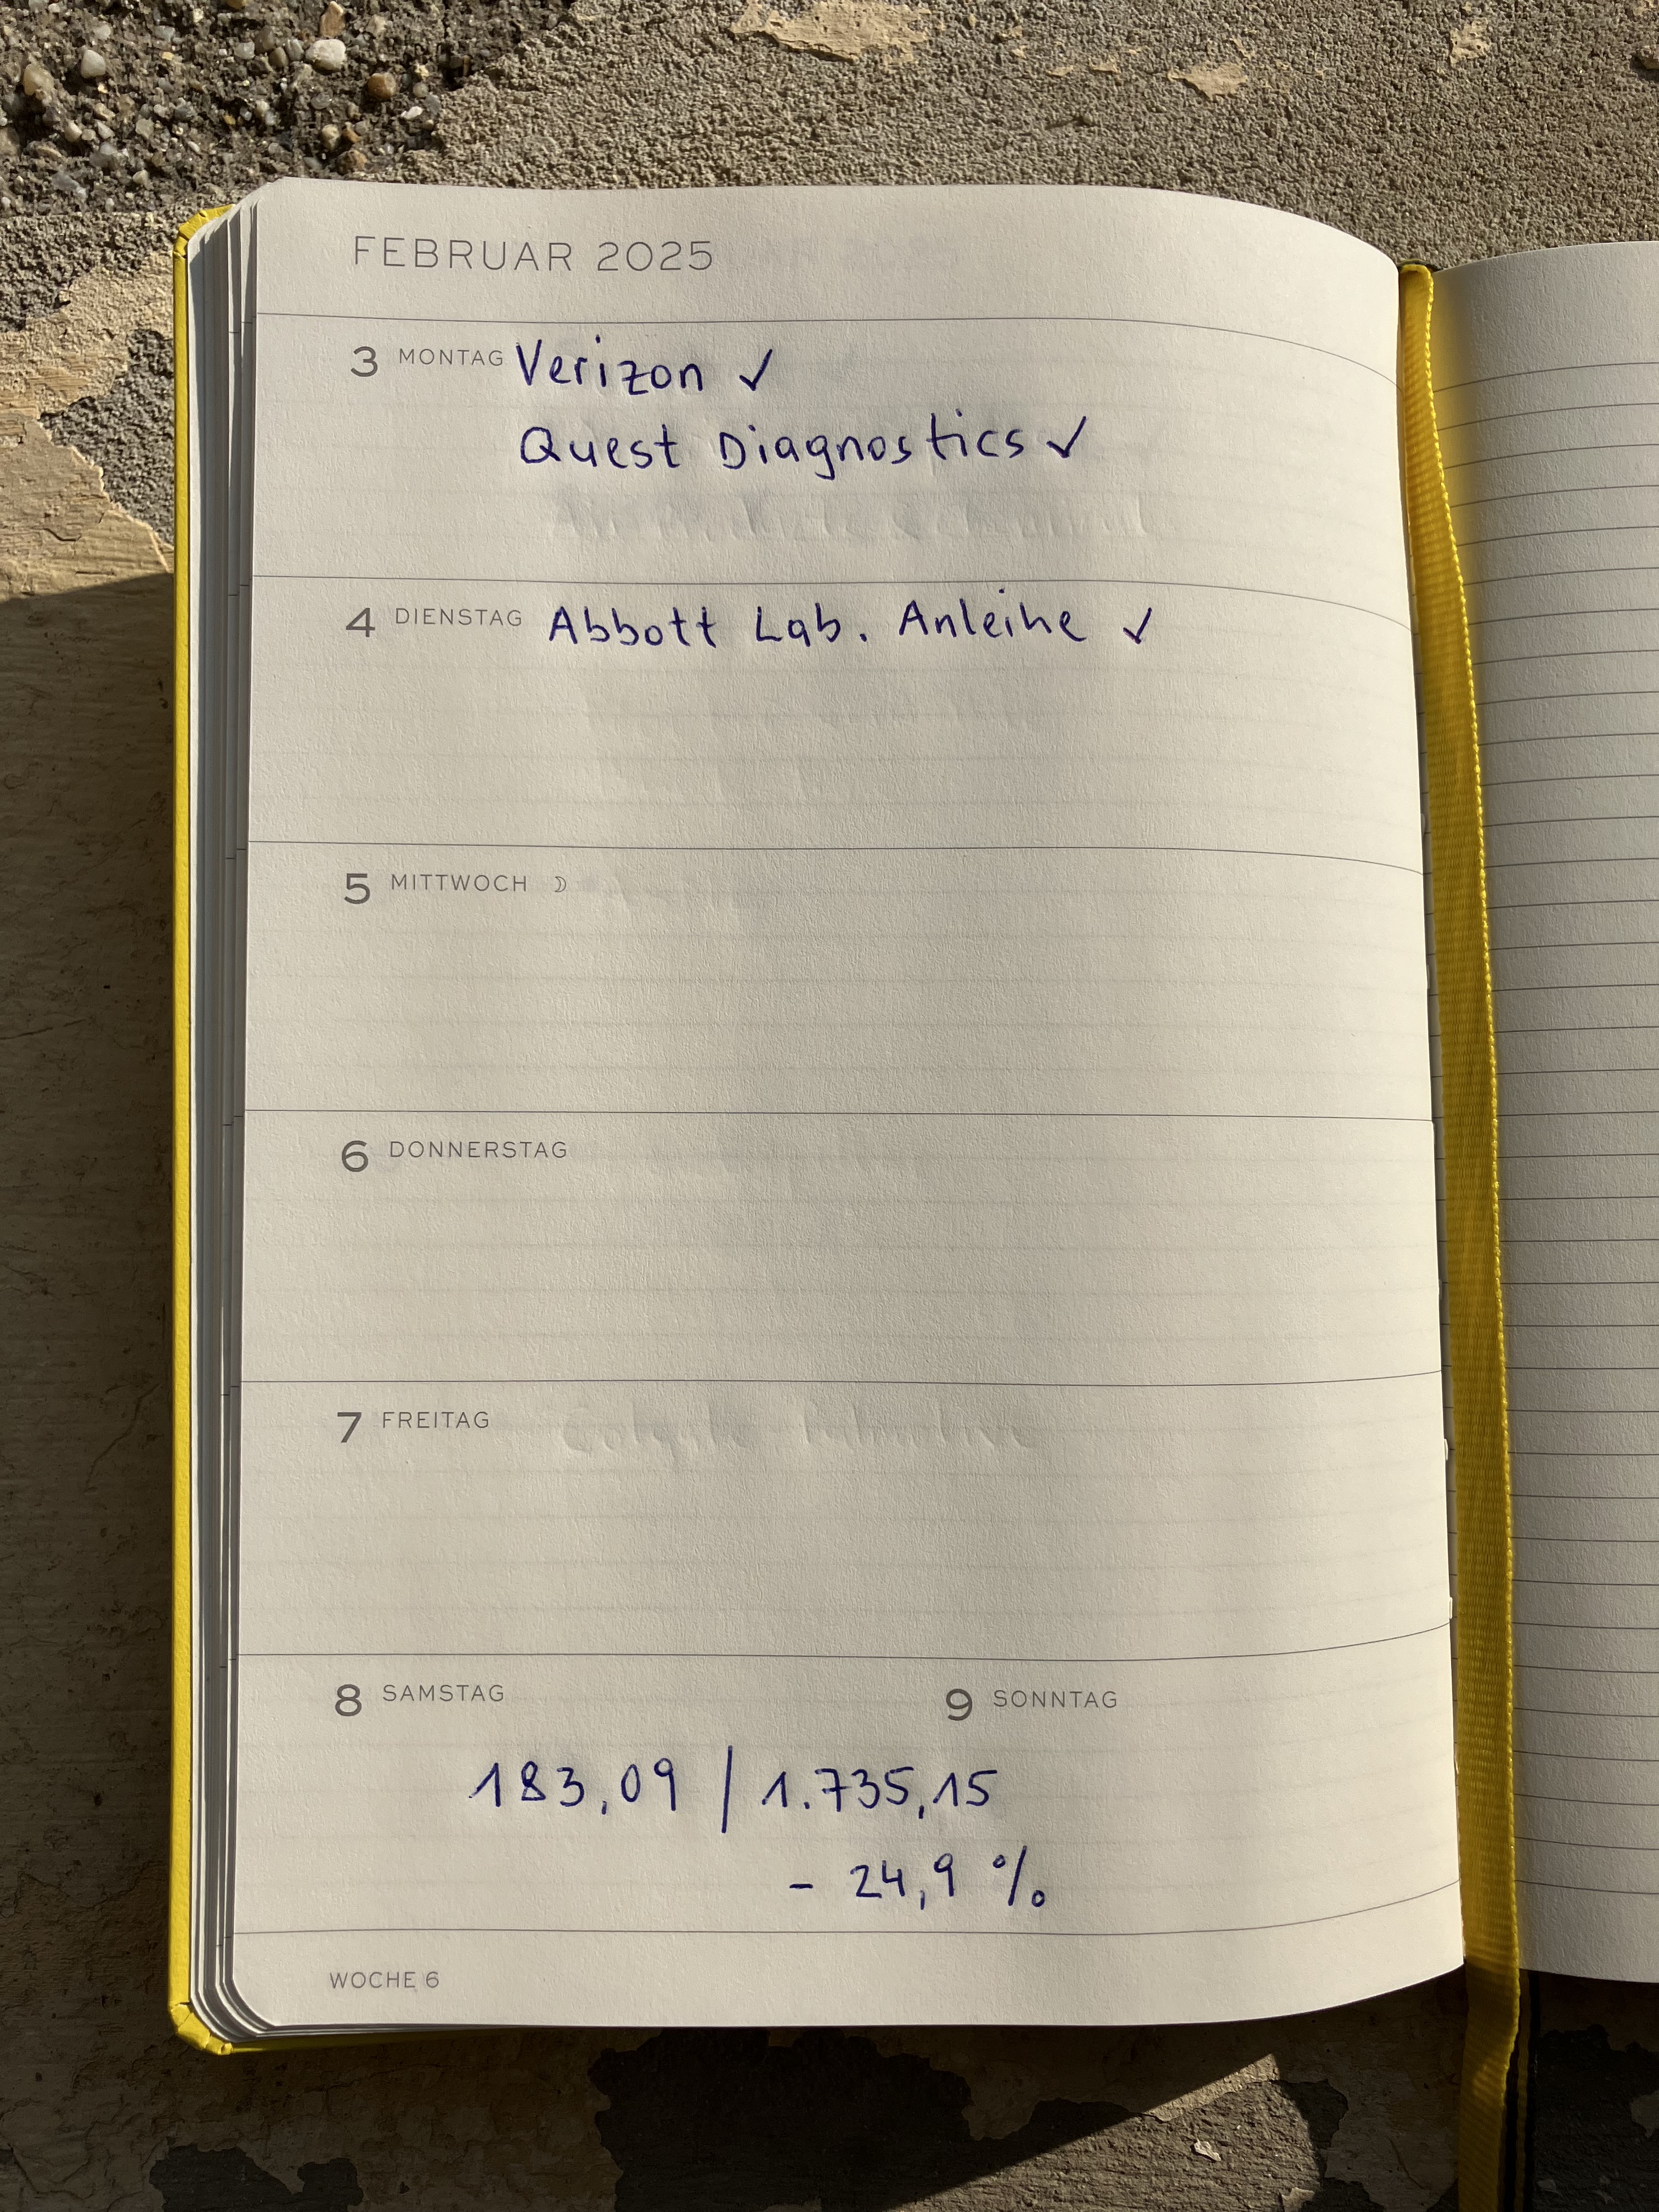 FEBRUAR 2025
3 MONTAG Verizon ✓
Quest Diagnostics ✓
4 DIENSTAG Abbott Lab. Anleihe ✓
5 MITTWOCH ☽
6 DONNERSTAG
7 FREITAG
8 SAMSTAG 9 SONNTAG
183,09 / 1.735,15
- 24,9 %
WOCHE 6